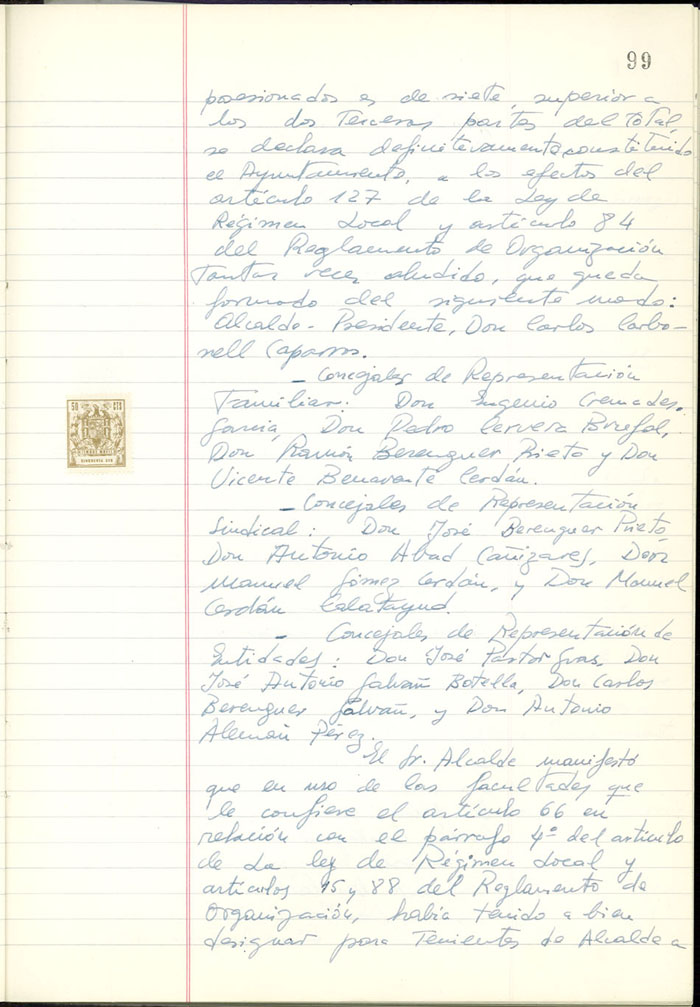 99
posesionados es de siete, superior a
los dos Terceras partes del total,
se declara definitivamente constituido
el Ayuntamiento, a los efectos del
artículo 127 de la Ley de
Régimen Local y artículo 84
del Reglamento de Organización
Tantas veces aludido, que queda
formado del siguiente modo:
Alcalde-Presidente, Don Carlos Carbo-
nell Caparros.
- Concejales de Representación
Familiar: Don Eugenio Cremades
García, Don Pedro Cervera
Don Ramón Berenguer Prieto y Don
Vicente Benavente Cerdán.
- Concejales de Representación
Sindical: Don José Berenguer Prieto,
Don Antonio Abad Cañizares, Don
Manuel Gómez Cerdán, y Don Manuel
Cerdán Calatayud.
- Concejales de Representación de
Entidades: Don José Pastor Gras, Don
José Antonio Galvañ Botella, Don Carlos
Berenguer Galvañ, y Don Antonio
Alemán Pérez.
El Sr. Alcalde manifestó
que en uso de las facultades que
le confiere el artículo 66 en
relación con el párrafo 4º del artículo
de la ley de Régimen Local y
artículos 15 y 88 del Reglamento de
Organización, había tenido a bien
designar para Tenientes de Alcalde a
50 CTS